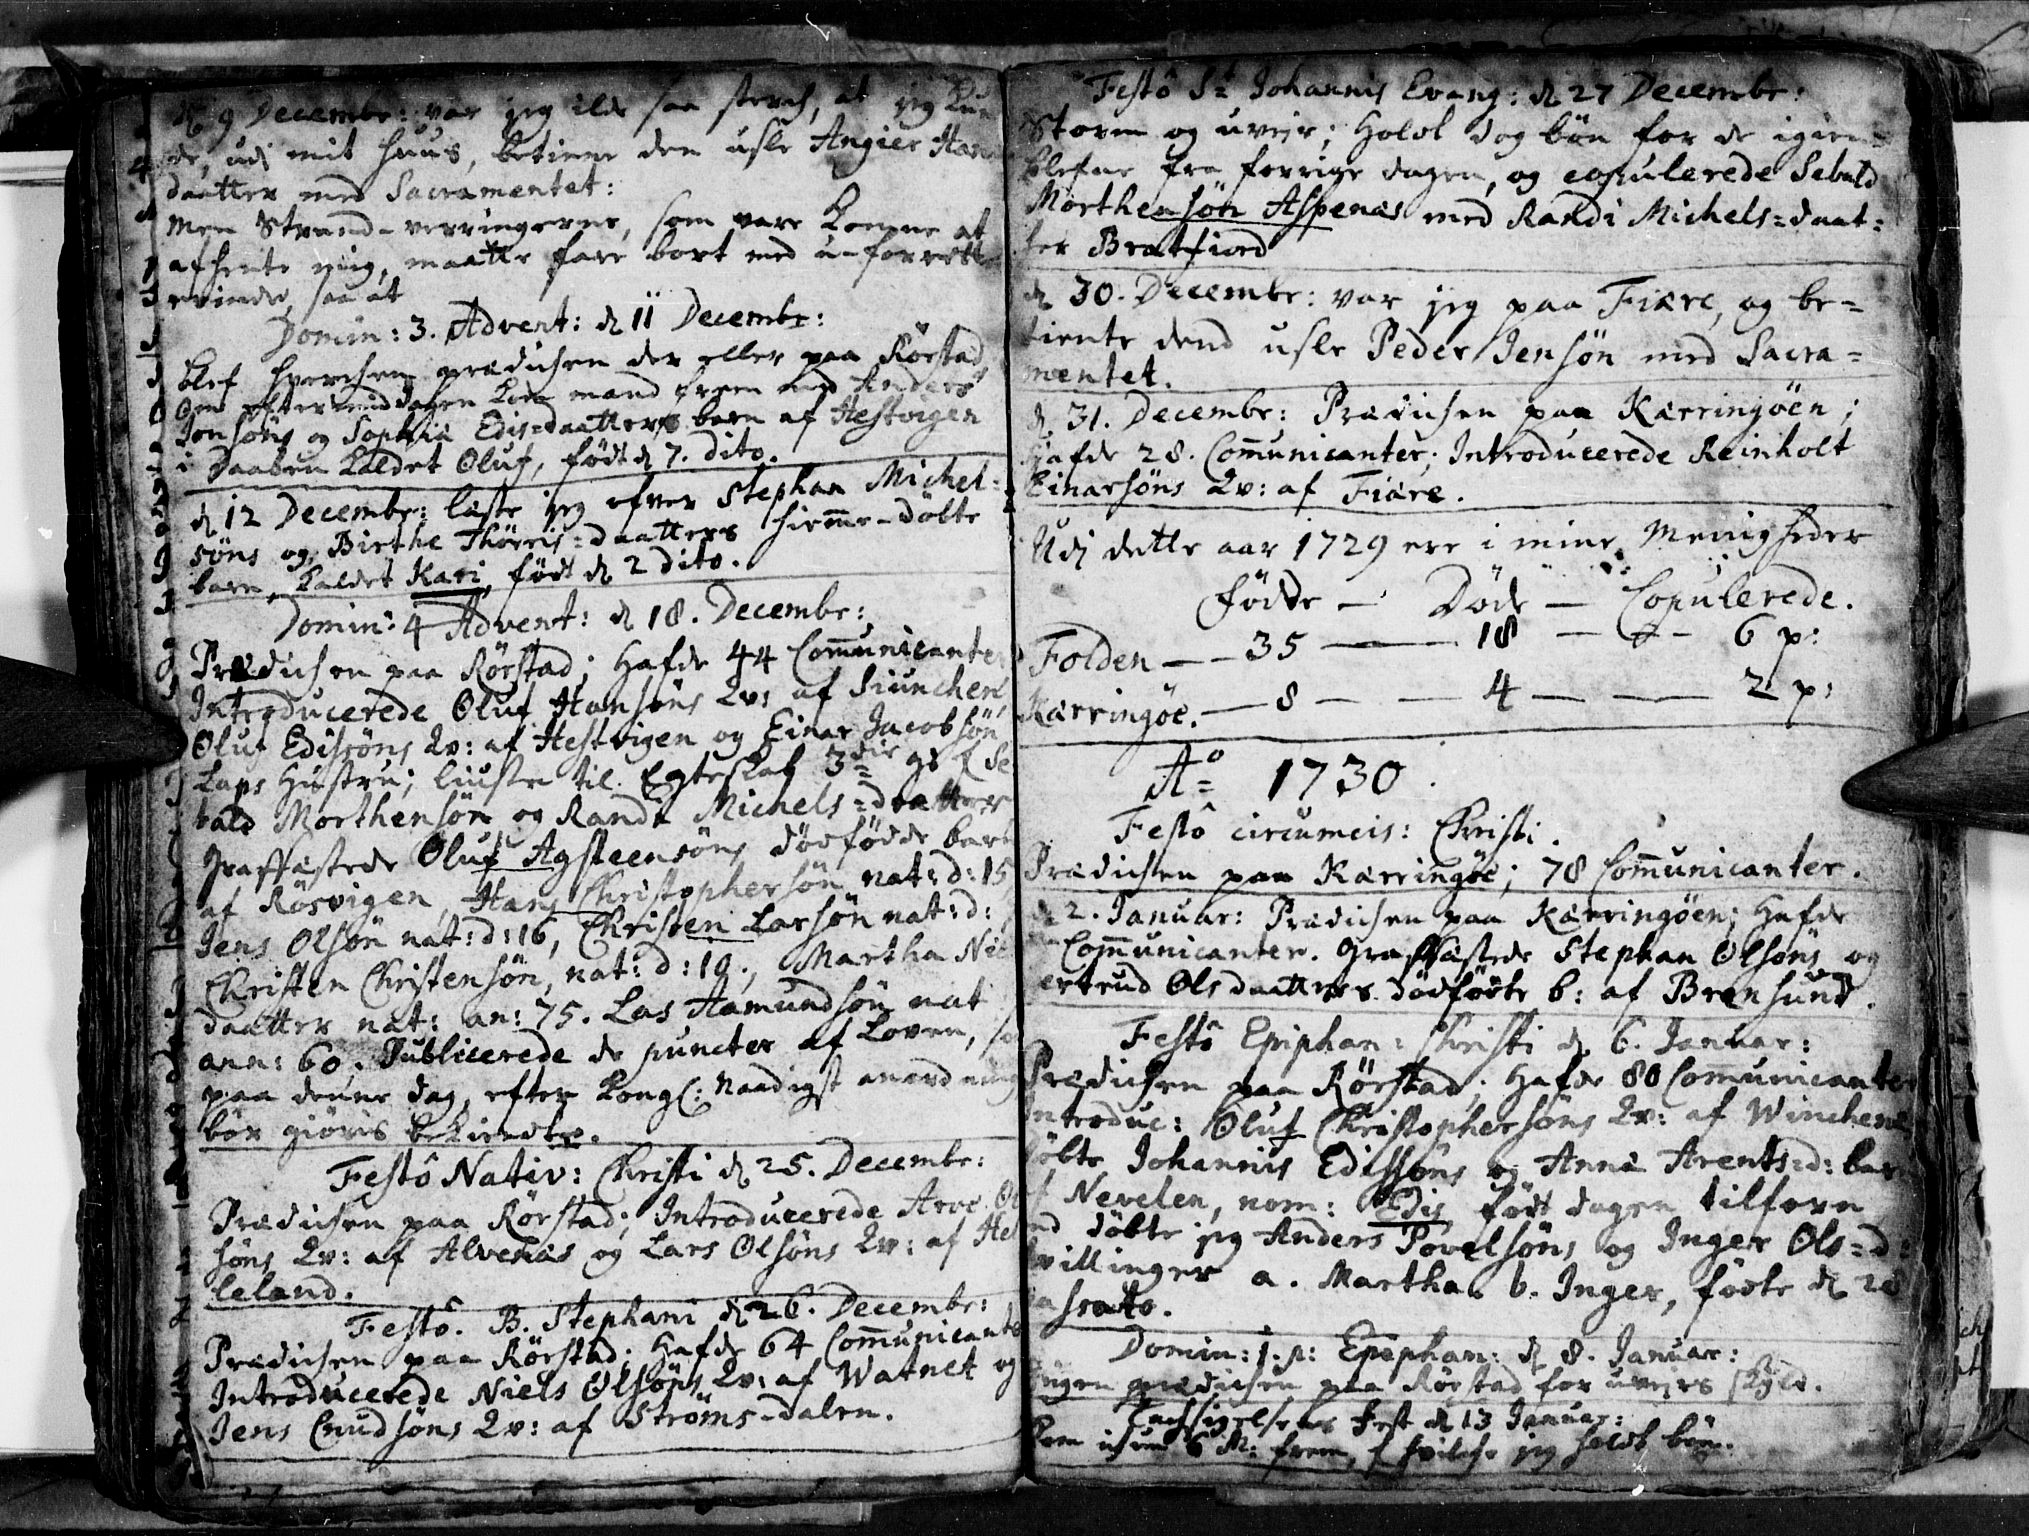 d 9 Decembr: var jeg ilde saa sterch, at jeg kun-
de, udj mit huus, betiene den usle Angier Hans
daatter med Sacramentet:
Men Strand-, som vare komne at
afhente mig, maatte fare bort med u-forrett
erinde, saa at
Domin: 3. Advent: d 11 Decembr:
blef hverchen prædichen der eller paa Rörstad
Om eftermiddagen kom mand frem med Anders
Jensöns og Sophia Edis-daatters barn af Hestvigen
i Daaben kaldet Oluf, födt d 7. dito.
d 12 Decembr: læste jeg ofver Stephan Michel-
söns og Birthe Thörris-daatters hiemme-döbte
barn, kaldet Kari, födt d 2 dito.
Domin: 4 Advent: d 18. Decembr:
Prædichen paa Rörstad; Hafde 44 Communicanter
Introducerede Oluf Hansöns Qv: af Siunchen
Oluf Edisöns Qv: af Hestvigen og Einar Jacobsön
Laps Hustru; liuste til Egteskab 3die gs f Se
bald Morthensön og Randi Michels-daatter
Graffæstede Oluf Agsteensöns dödfödde barn
af Rösvigen, Hans Christophersön nat: d: 15
Jens Olsön nat: d: 16, Christen Larsön nat: d:
Christen Christensön, nat: d: 19., Martha Nic
daatter nat: an: 75. Las Hamundsön nat
ann: 60. Publicerede de puncter af Loven, so
paa denne dag, efter Kongl: Naadigst anordning
bör giöris bekiendte.
Festô Nativ: Christi d 25. Decembr:
Prædichen paa Rörstad; Introducerede Arve Ol
söns Qv: af Alvenæs og Lars Olsöns Qv: af Hel
leland.
Festô. B. Stephani d 26. Decembr:
Prædichen paa Rörstad; Hafde 64 Communicants
Introducerede Niels Olsöns Qv: af Watnet og
Jens Cnudsöns Qv: af Ströms-dalen.
Festô St Johannis Evang: d 27 Decembr:
Storm og uvejr; Holdt dog bön for de igien-
blefne fra forrige dagen, og copulerede Sebald
Morthensön Aspenæs med Randi Michels-daat-
ter Bratfiord
d 30. Decembr: var jeg paa Fiære, og be-
tiente dend usle Peder Jensön med Sacra-
mentet.
d. 31. Decembr: Prædichen paa Kærringöen;
Hafde 28. Communicanter; Introducerede Reinholt
Einarsöns Qv: af Fiære.
Udj dette aar 1729 ere i mine Menigheder
födde — Döde — Copulerede.
Folden — — 35 — 18 — — 6 p:
Kærringöe. — 8 — — 4 — — 2 p:
Ao 1730.
Festô circumcis: Christi.
Prædichen paa Kærringöe; 78 Communicanter.
d 2. Januar: Prædichen paa Kærringöen; Hafde
Communicanter. Graffæstede Stephan Olsöns og
ertrud Olsdaatters dödföde b: af Brensund.
Festô Epiphan: Christi d 6. Januar:
Prædichen paa Rörstad; Hafde 80 Communicanter
Introduc: Oluf Christophersöns Qv: af Winchen
döbte Johannis Edissöns og Anna Arents: d: barn
af Nevelen, nom: Edis födt dagen tilforn
nd döbte jeg Anders Povelsöns og Inger Ols-d:
tvillinger a. Martha. b. Inger, födte d 28
passato.
Domin: 1. p: Epiphan: d 8. Januar:
Ingen prædichen paa Rörstad for uvejrs skyld.
Tachsigelsens Fest d 13 Januar:
Kom ichun 6 M: frem, f hvilche jeg holdt bön.